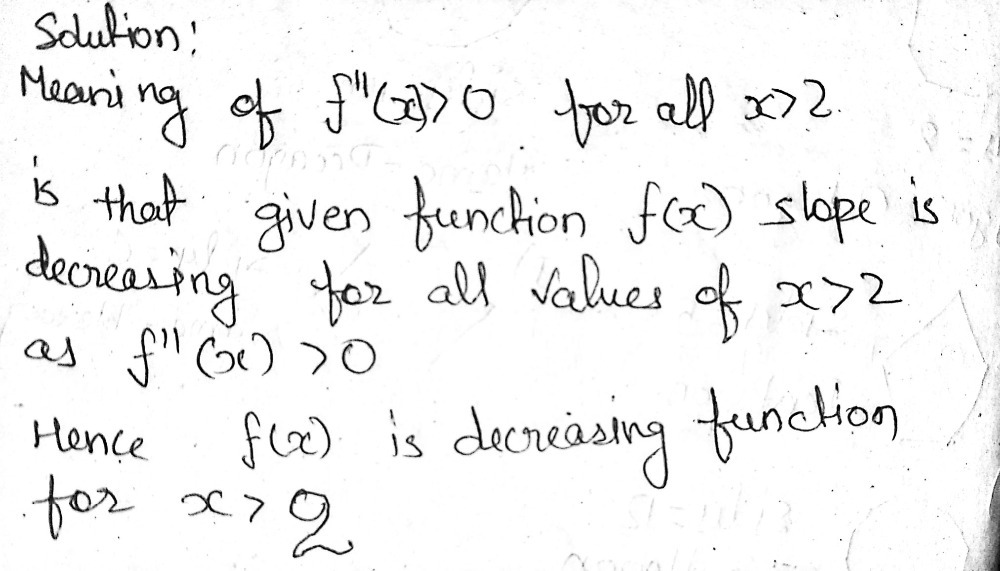 Solution:
Meaning of f"(x)>0 for all x>2
is that given function f(x) slope is
decreasing for all values of x>2
as f"(x) >0
Hence f(x) is decreasing function
for x>2